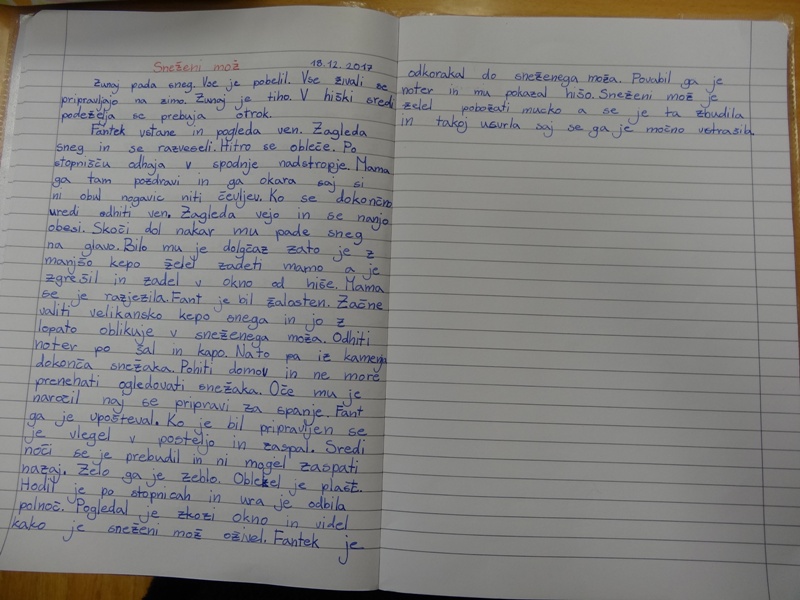 Sneženi mož 18.12.2017
Zunaj pada sneg. Vse je pobelil. Vse živali se
pripravljajo na zimo. Zunaj je tiho. V hiški sredi
podeželja se prebuja otrok.
Fantek vstane in pogleda ven. Zagleda
sneg in se razveseli. Hitro se obleče. Po
stopnišču odhaja v spodnje nadstropje. Mama
ga tam pozdravi in ga okara saj si
ni obul nogavic niti čevljev. Ko se dokončno
uredi odhiti ven. Zagleda vejo in se nanjo
obesi. Skoči dol nakar mu pade sneg
na glavo. Bilo mu je dolgčaz zato je z
manjšo kepo želel zadeti mamo a je
zgrešil in zadel v okno od hiše. Mama
se je razjezila. Fant je bil žalosten. Začne
valiti velikansko kepo snega in jo z
lopato oblikuje v sneženega moža. Odhiti
noter po šal in kapo. Nato pa iz kamenja
dokonča snežaka. Pohiti domov in ne more
prenehati ogledovati snežaka. Oče mu je
naročil naj se pripravi za spanje. Fant
ga je upošteval. Ko je bil pripravljen se
je vlegel v posteljo in zaspal. Sredi
noči se je prebudil in ni mogel zaspati
nazaj. Zelo ga je zeblo. Oblekel je plašč.
Hodil je po stopnicah in ura je odbila
polnoč. Pogledal je zkozi okno in videl
kako je sneženi mož oživel. Fantek je
odkorakal do sneženega moža. Povabil ga je
noter in mu pokazal hišo. Sneženi mož je
želel pobožati mucko a se je ta zbudila
in takoj usurla saj se ga je močno ustrašila.